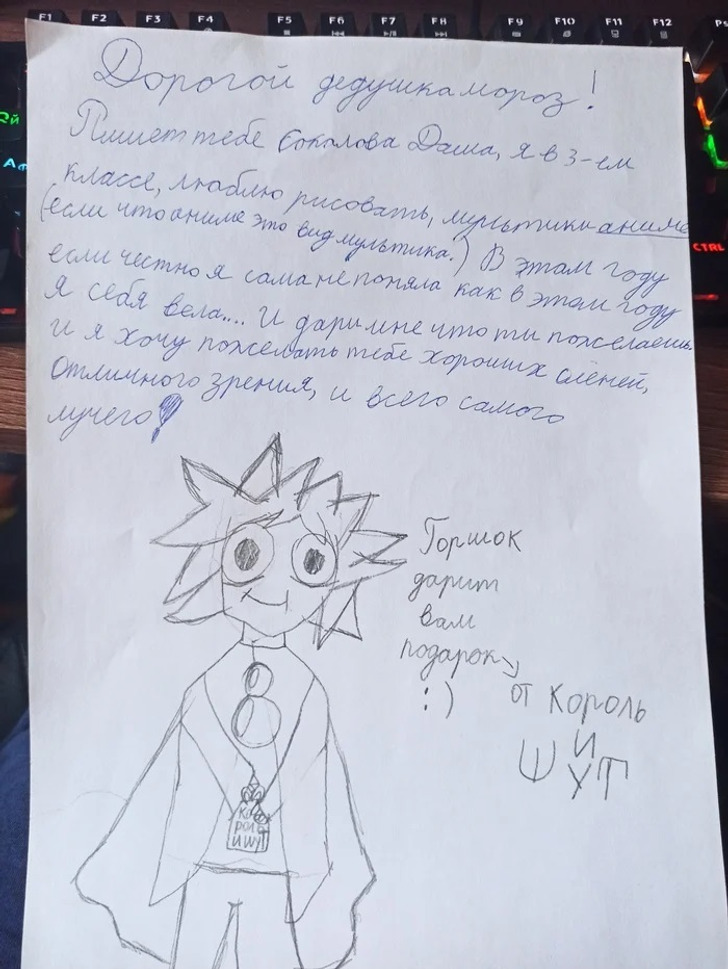 F1 F2 F3 F4 F5 F6 F7 F8 F9 F10 F11 F12
CTRL
Дорогой дедушка мороз!
Пишет тебе Соколова Даша, я в 3-ем
классе, люблю рисовать, мультики аниме
(если что аниме это вид мультика.) В этам году
если честно я сама не поняла как в этам году
я себя вела.... И дари мне что ти пожелаешь.
и я хочу пожелать тебе хороших оленей,
отличного зрения, и всего самого
лучего!
Горшок
дарит
вам
подарок
:)
от Король
И
ШУТ
Ко
роль
И шут